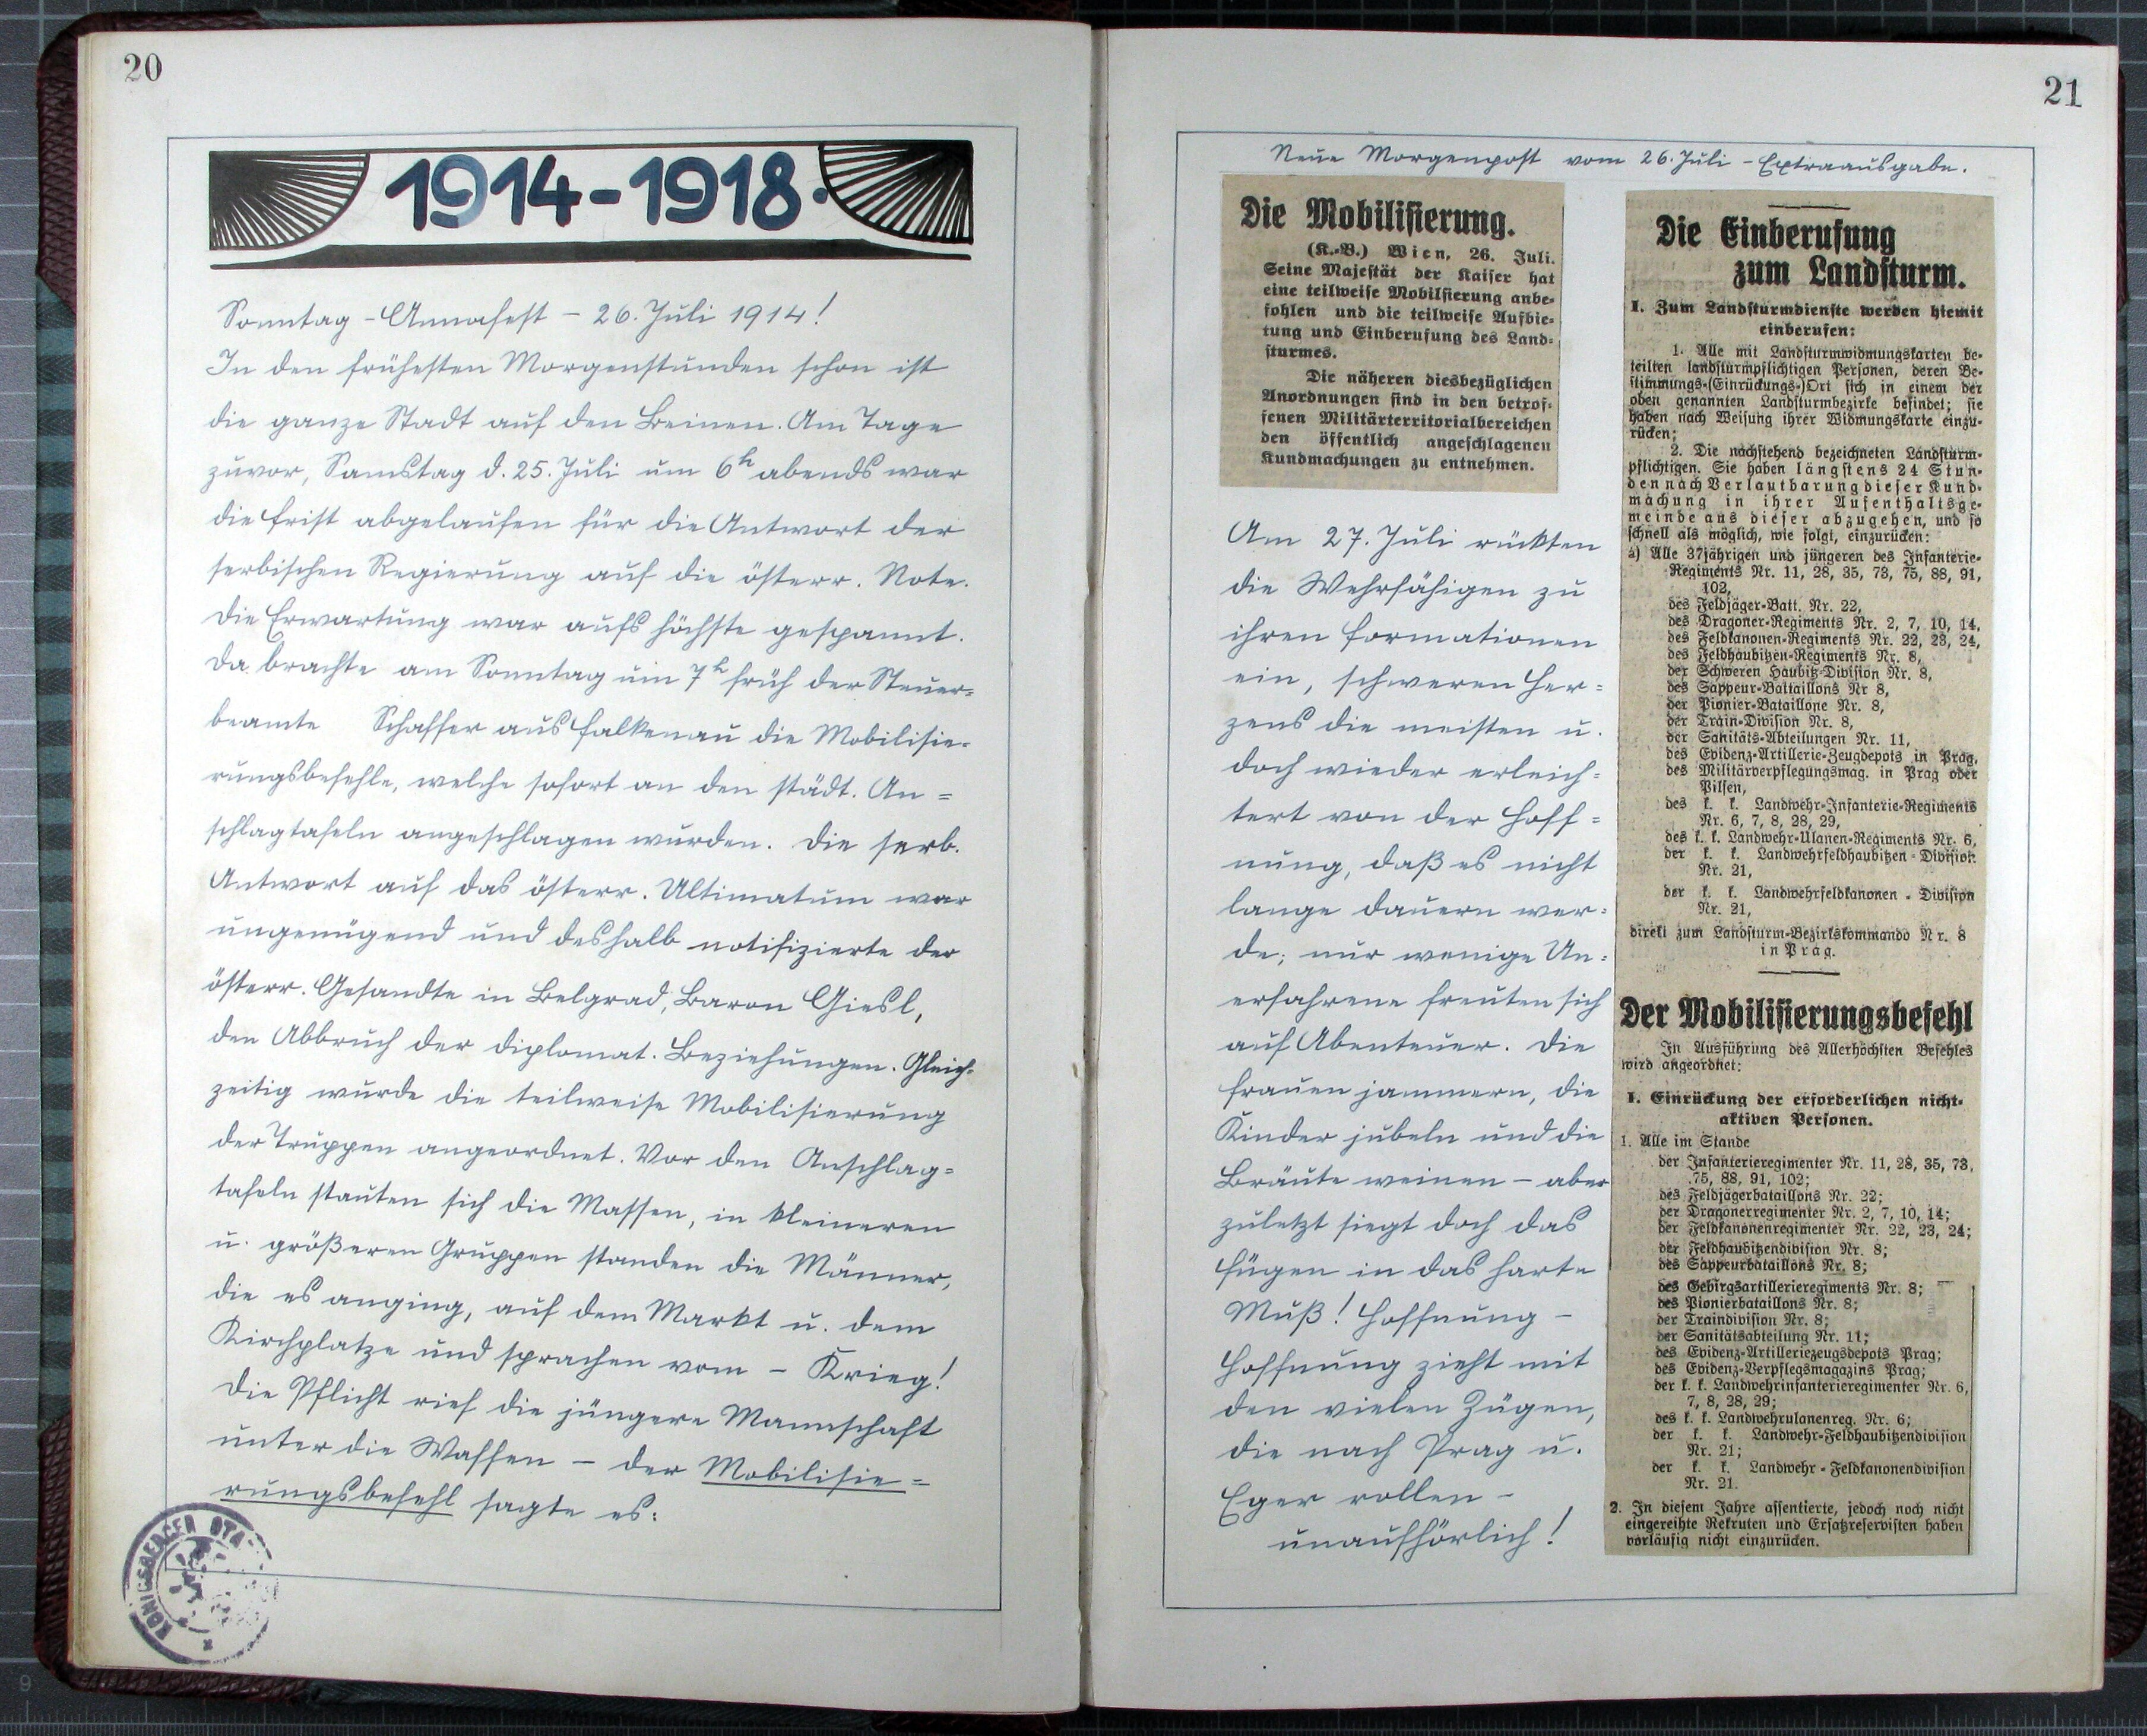 20
1914-1918.
Sonntag - Annafest - 26. Juli 1914!
In den frühesten Morgenstunden schon ist
die ganze Stadt auf den Beinen. Am Tage
zuvor, Samstag d. 25. Juli um 6h abends war
die Frist abgelaufen für die Antwort der
serbischen Regierung auf die österr. Note.
Die Erwartung war aufs höchste gespannt.
Da brachte am Sonntag um 7h früh der Steuer=
beamte Schaffer aus Falkenau die Mobilisie=
rungsbefehle, welche sofort an den städt. An=
schlagtafeln angeschlagen wurden. Die serb.
Antwort auf das österr. Ultimatum war
ungenügend und deshalb notifizierte der
österr. Gesandte in Belgrad, Baron Giesl,
den Abbruch der diplomat. Beziehungen. Gleich=
zeitig wurde die teilweise Mobilisierung
der Truppen angeordnet. Vor den Anschlag=
tafeln stauten sich die Massen, in kleineren
u. größeren Gruppen standen die Männer,
die es anging, auf dem Markt u. dem
Kirchplatze und sprachen vom - Krieg!
Die Pflicht rief die jüngere Mannschaft
unter die Waffen - der Mobilisie=
rungsbefehl sagte es:
KÖNIGSBERGER
21
Neue Morgenpost vom 26. Juli - Extraausgabe.
Die Mobilisierung.
(K.-B.) Wien, 26. Juli.
Seine Majestät der Kaiser hat
eine teilweise Mobilsierung anbe-
fohlen und die teilweise Aufbie-
tung und Einberufung des Land-
sturmes.
Die näheren diesbezüglichen
Anordnungen sind in den betrof-
fenen Militärterritorialbereichen
den öffentlich angeschlagenen
Kundmachungen zu entnehmen.
Am 27. Juli rückten
die Wehrfähigen zu
ihren Formationen
ein, schweren Her=
zens die meisten u.
doch wieder erleich=
tert von der Hoff=
nung, daß es nicht
lange dauern wer=
de; nur wenige Un=
erfahrene freuten sich
auf Abenteuer. Die
Frauen jammern, die
Kinder jubeln und die
Bräute weinen - aber
zuletzt siegt doch das
Fügen in das harte
Muß! Hoffnung -
Hoffnung zieht mit
den vielen Zügen,
die nach Prag u.
Eger rollen -
unaufhörlich!
Die Einberufung
zum Landsturm.
I. Zum Landsturmdienste werden hiemit
einberufen:
1. Alle mit Landsturmwidmungskarten be-
teilten landsturmpflichtigen Personen, deren Be-
stimmungs-(Einrückungs-)Ort sich in einem der
oben genannten Landsturmbezirke befindet; sie
haben nach Weisung ihrer Widmungskarte einzu-
rücken;
2. Die nachstehend bezeichneten Landsturm-
pflichtigen. Sie haben längstens 24 Stun-
den nach Verlautbarung dieser Kund-
machung in ihrer Aufenthaltsge-
meinde aus dieser abzugehen, und so
schnell als möglich, wie folgt, einzurücken:
a) Alle 37jährigen und jüngeren des Infanterie-
Regiments Nr. 11, 28, 35, 73, 75, 88, 91,
102,
des Feldjäger-Batt. Nr. 22,
des Dragoner-Regiments Nr. 2, 7, 10, 14,
des Feldkanonen-Regiments Nr. 22, 23, 24,
des Feldhaubitzen-Regiments Nr. 8,
der Schweren Haubitz-Division Nr. 8,
des Sappeur-Bataillons Nr 8,
der Pionier-Bataillone Nr. 8,
der Train-Division Nr. 8,
der Sanitäts-Abteilungen Nr. 11,
des Evidenz-Artillerie-Zeugdepots in Prag,
des Militärverpflegungsmag. in Prag oder
Pilsen,
des k. k. Landwehr-Infanterie-Regiments
Nr. 6, 7, 8, 28, 29,
des k. k. Landwehr-Ulanen-Regiments Nr. 6,
der k. k. Landwehrfeldhaubitzen-Division
Nr. 21,
der k. k. Landwehrfeldkanonen-Division
Nr. 21,
direkt zum Landsturm-Bezirkskommando Nr. 8
in Prag.
Der Mobilisierungsbefehl
In Ausführung des Allerhöchsten Befehles
wird angeordnet:
I. Einrückung der erforderlichen nicht-
aktiven Personen.
1. Alle im Stande
der Infanterieregimenter Nr. 11, 28, 35, 73,
75, 88, 91, 102;
des Feldjägerbataillons Nr. 22;
der Dragonerregimenter Nr. 2, 7, 10, 14;
der Feldkanonenregimenter Nr. 22, 23, 24;
der Feldhaubitzendivision Nr. 8;
des Sappeurbataillons Nr. 8;
des Gebirgsartillerieregiments Nr. 8;
des Pionierbataillons Nr. 8;
der Traindivision Nr. 8;
der Sanitätsabteilung Nr. 11;
des Evidenz-Artilleriezeugsdepots Prag;
des Evidenz-Verpflegsmagazins Prag;
der k. k. Landwehrinfanterieregimenter Nr. 6,
7, 8, 28, 29;
des k. k. Landwehrulanenreg. Nr. 6;
der k. k. Landwehr-Feldhaubitzendivision
Nr. 21;
der k. k. Landwehr-Feldkanonendivision
Nr. 21.
2. In diesem Jahre assentierte, jedoch noch nicht
eingereihte Rekruten und Ersatzreservisten haben
vorläufig nicht einzurücken.